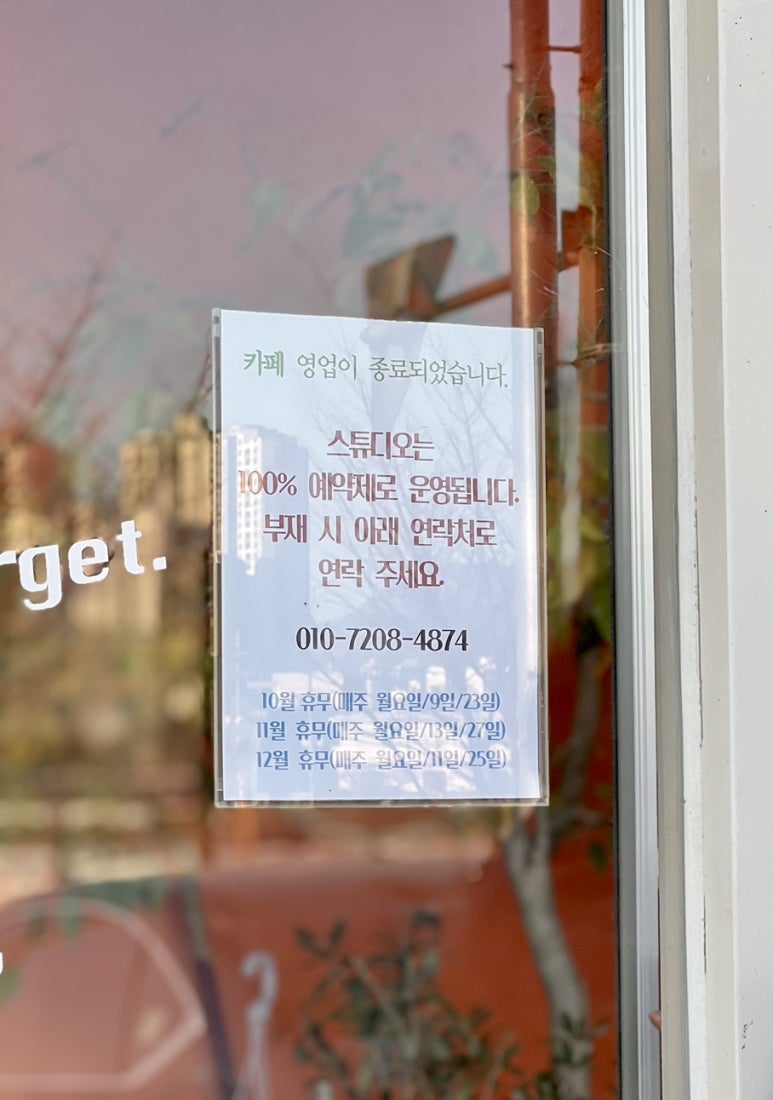 카페 영업이 종료되었습니다.
스튜디오는
100% 예약제로 운영됩니다.
부재 시 아래 연락처로
연락 주세요.
010-7208-4874
10월 휴무(매주 월요일/9일/23일)
11월 휴무(매주 월요일/13일/27일)
12월 휴무(매주 월요일/11일/25일)
rget.